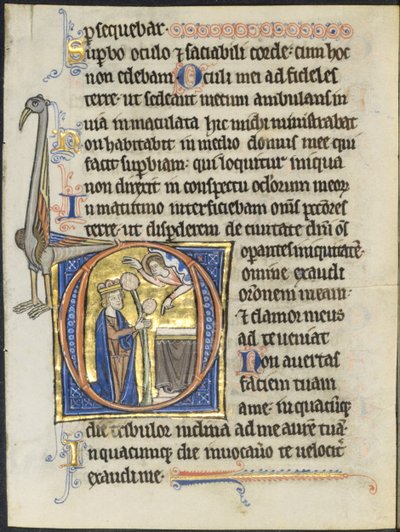 psequebar.
Supbo oculo ⁊ saciabili corde: cum hoc
non edebam Oculi mei ad fideles
terre: ut sedeant mecum ambulans in
uia inmaculata hic michi ministrabat
Non habitabit in medio domus mee qui
facit supbiam: qui loquitur iniqua
non direxit in conspectu oculorum meor
In matutino interficiebam oms pctores
terre: ut disperderem de ciuitate dni os
opantes iniquitatem
Domine exaudi
oronem meam:
⁊ clamor meus
ad te ueniat
Non auertas
faciem tuam
a me: in quacumq
die tribulor inclina ad me aurem tua
In quacumque die inuocauo te uelocit
exaudi me.